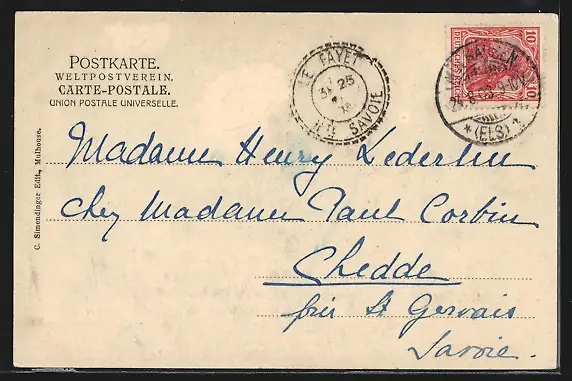 POSTKARTE.
WELTPOSTVEREIN.
CARTE-POSTALE.
UNION POSTALE UNIVERSELLE.
LE FAYET
25
HTE SAVOIE
DEUTSCHES REICH
10
10
(ELS)
C. Simendinger Edit., Mulhouse.
Madame Henry Lederlin
chez Madame Paul Corbin
Chedde
près St Gervais
Savoie.